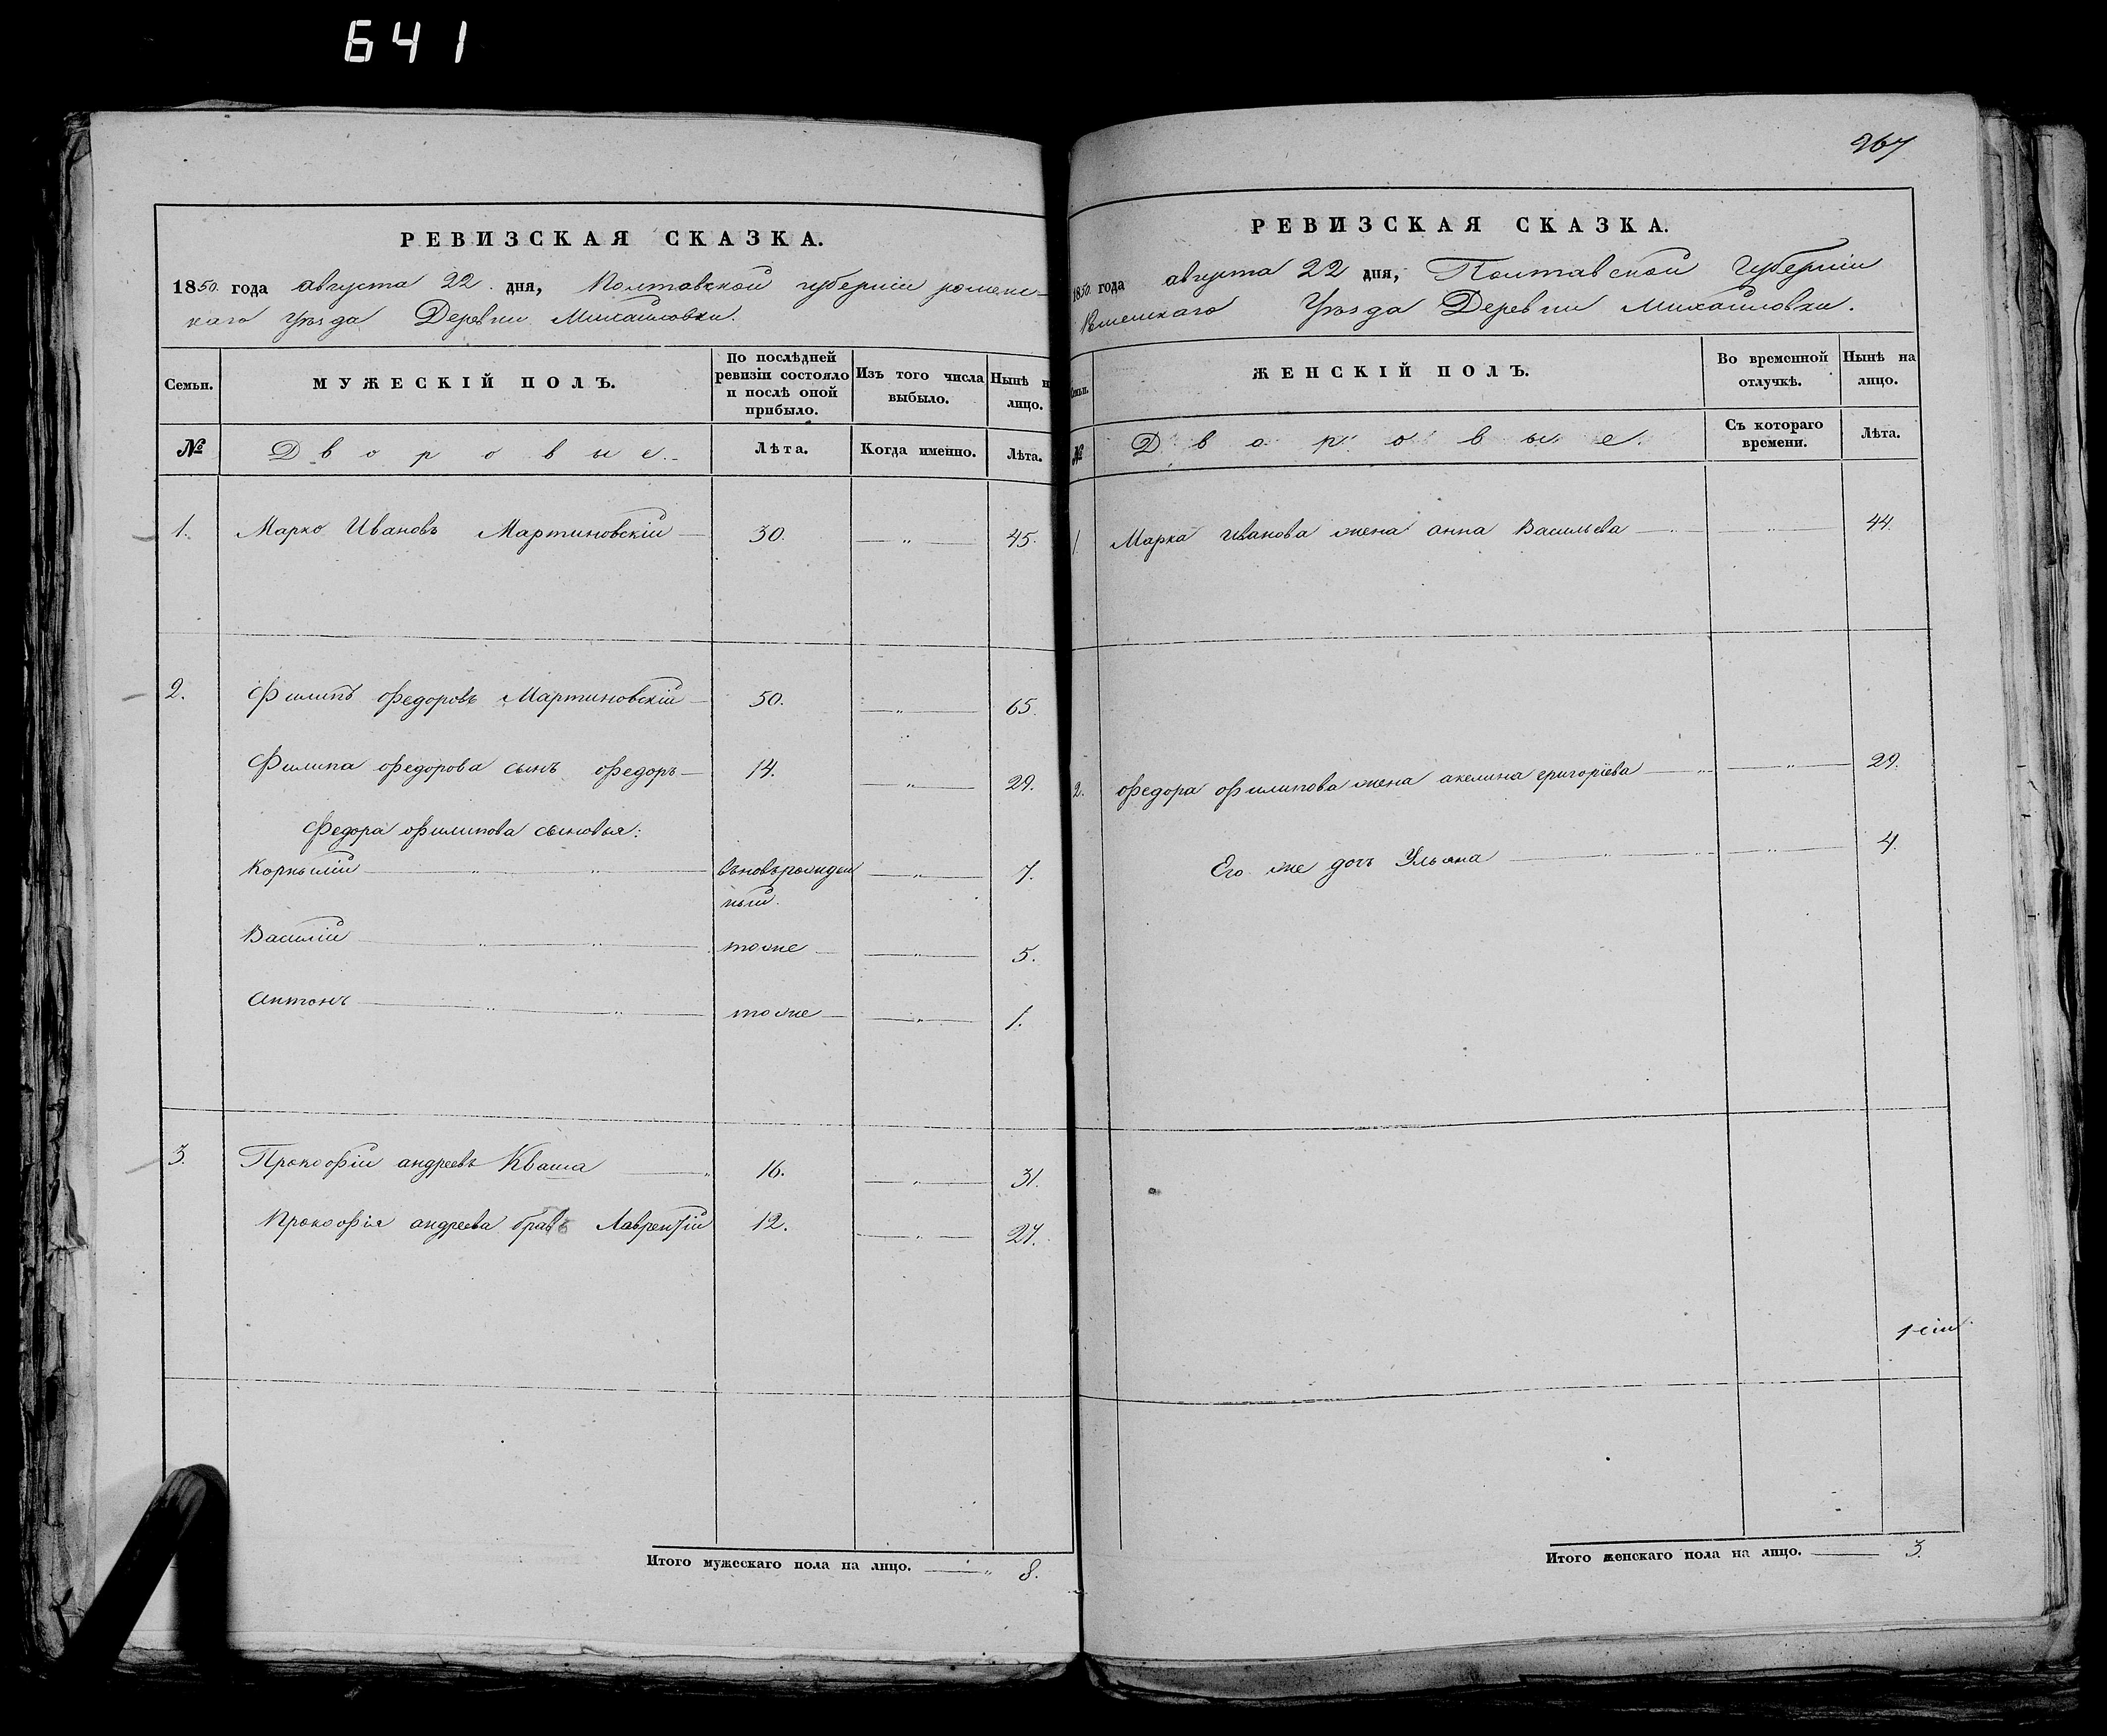 641
РЕВИЗСКАЯ СКАЗКА.
1850. года августа 22. дня, Полтавской губерніи роменс-
каго уѣзда Деревни Михайловки.
Семьи. МУЖЕСКІЙ ПОЛЪ. По послѣдней ревизіи состояло и послѣ оной прибыло. Изъ того числа выбыло. Нынѣ н лицо.
№ Дворовые. Лѣта. Когда именно. Лѣта.
1. Марко Ивановъ Мартиновскій 30. — „ — 45.
2. Филипъ Федоровъ Мартиновскій 50. — „ — 65.
Филипа федорова сынъ федоръ 14. — „ — 29.
Федора филипова сыновья:
Корнылій „ „ вьновьрожден — „ — 7.
ный.
Василій „ „ тоже — „ — 5.
Антонъ „ „ тоже — „ — 1.
3. Прокофій андреевъ Кваша 16. — „ — 31.
Прокофія андреева братъ Лаврентій 12. — „ — 27.
Итого мужескаго пола на лицо. — „ 8.
267
РЕВИЗСКАЯ СКАЗКА.
1850. года августа 22 дня, Полтавской Губерніи
Роменскаго Уѣзда Деревни Михайловки.
Семьи. ЖЕНСКІЙ ПОЛЪ. Во временной отлучкѣ. Нынѣ на лицо.
№ Дворовые. Съ котораго времени. Лѣта.
1 Марка Иванова жена анна Васильева — „ — 44.
2. федора филипова жена акелина григоріева — „ — 29.
Его же дочъ Ульяна — „ — 4.
Итого женскаго пола на лицо. — 3.